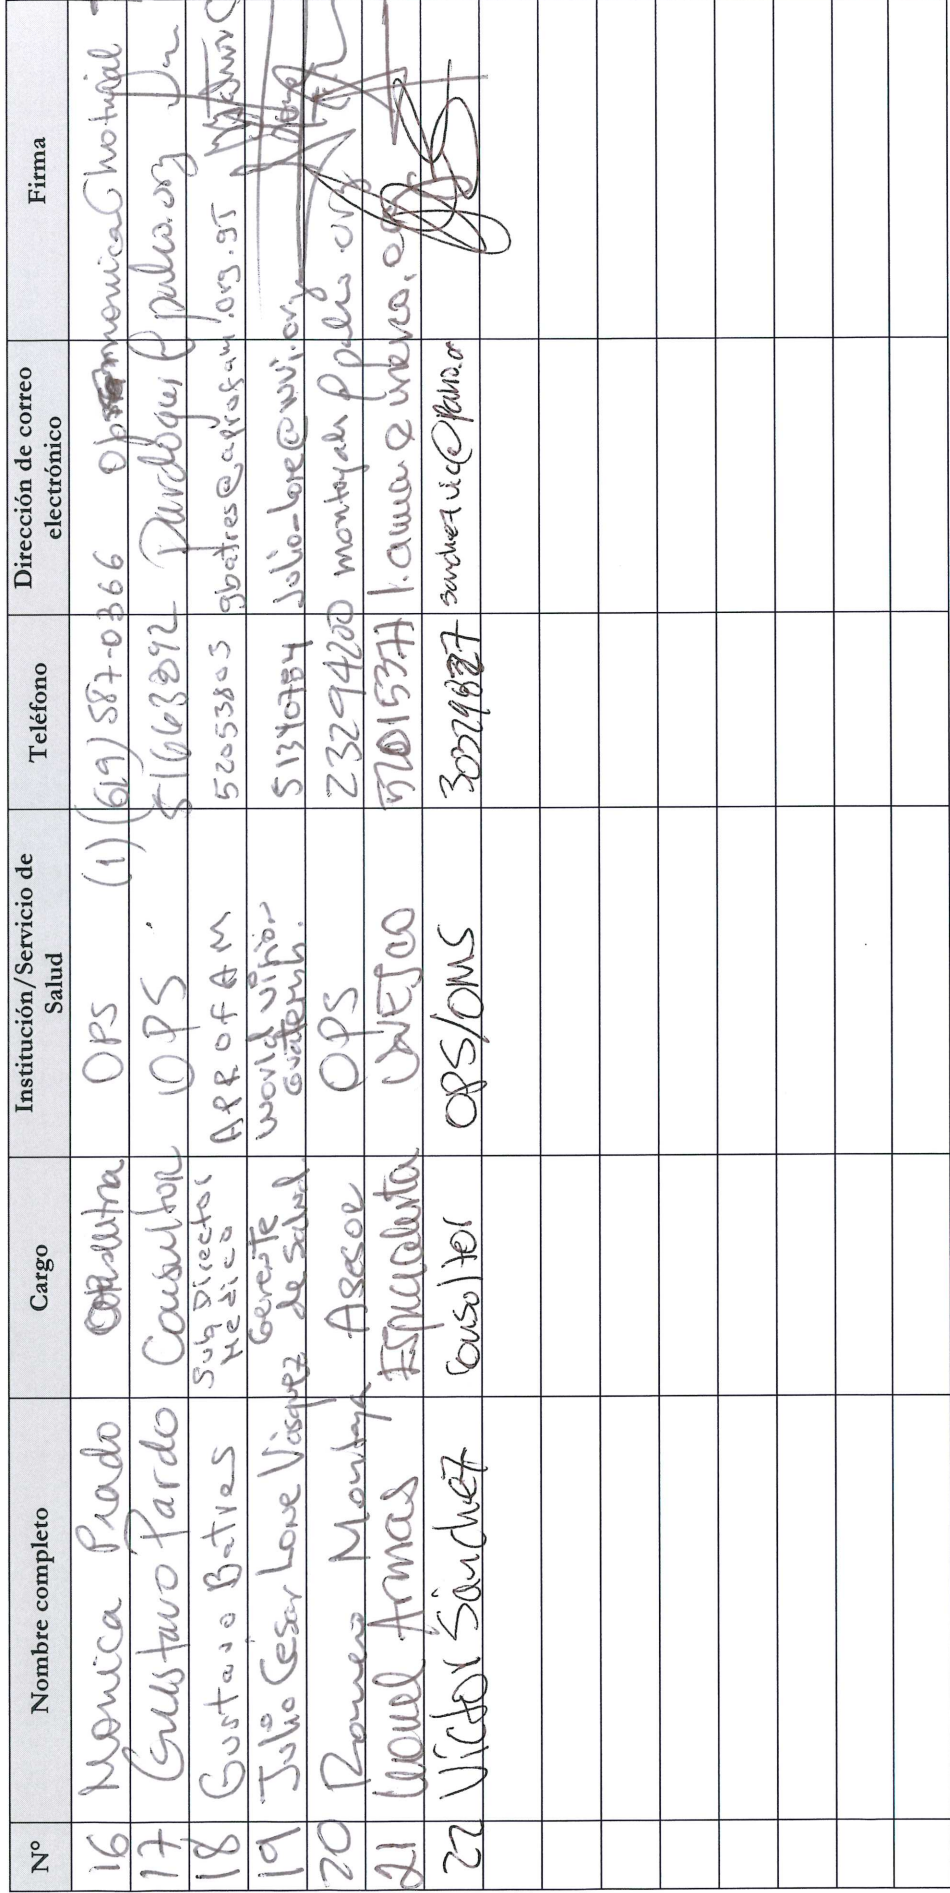 N° Nombre completo Cargo Institución/Servicio de Salud Teléfono Dirección de correo electrónico Firma
16 Monica Prado Consultora OPS (1) (619) 587-0366 monica@hotmail
17 Gustavo Pardo Consultor OPS 51663892 pardogui@paho.org
18 Gustavo Batres Sub Director Medico APROFAM 52053803 gbatres@aprofam.org.gt
19 Julio César Lone Vásquez Gerente de Salud World Vision Guatemala. 51340784 julio-lone@wvi.org
20 Romeo Montoya Asesor OPS 23294200 montoyah@paho.org
21 Leonel Armas Espacialista 52015377
22 Victor Sánchez Consultor OPS/OMS 30329827 sanchezvic@paho.o